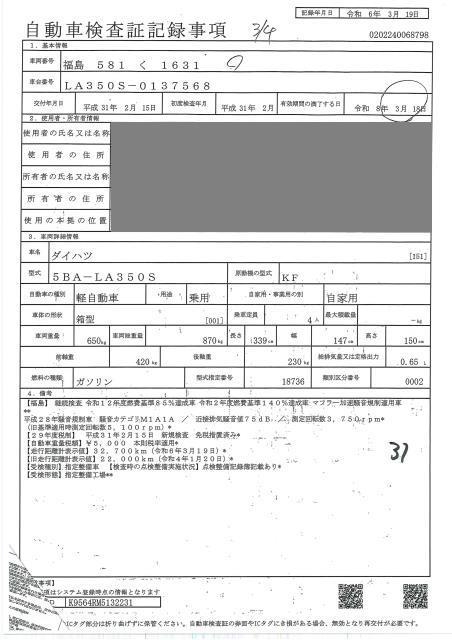 記録年月日 令和 6年 3月 19日
自動車検査証記録事項 3/4
0202240068798
1. 基本情報
車両番号 福島 581 く 1631
車台番号 LA350S-0137568
交付年月日 平成 31年 2月 15日 初度検査年月 平成 31年 2月 有効期間の満了する日 令和 8年 3月 18日
2. 使用者・所有者情報
使用者の氏名又は名称
使用者の住所
所有者の氏名又は名称
所有者の住所
使用の本拠の位置
3. 車両詳細情報
車名 ダイハツ [151]
型式 5BA-LA350S 原動機の型式 KF
自動車の種別 軽自動車 用途 乗用 自家用・事業用の別 自家用
車体の形状 箱型 [001] 乗車定員 4人 最大積載量 -kg
車両重量 650kg 車両総重量 870kg 長さ 339cm 幅 147cm 高さ 150cm
前軸重 420kg 後軸重 230kg 総排気量又は定格出力 0.65 L
燃料の種類 ガソリン 型式指定番号 18736 類別区分番号 0002
4. 備考
【福島】 継続検査 令和12年度燃費基準85%達成車 令和2年度燃費基準140%達成車 マフラー加速騒音規制適用車
**
平成28年騒音規制車 騒音カテゴリM1A1A / 近接排気騒音値75dB / 測定回転数3,750rpm*
(旧基準適用時測定回転数5,100rpm)*
【29年度税制】 平成31年2月15日 新規検査 免税措置済み*
【自動車重量税額】 ¥5,000 本則税率適用*
【走行距離計表示値】32,700km (令和6年3月19日)*
【旧走行距離計表示値】22,000km (令和4年1月20日)*
【受検種別】指定整備車 【検査時の点検整備実施状況】点検整備記録簿記載あり*
【受検形態】指定整備工場**
31
事項】
項はシステム登録時点の情報となります
K9564RM5132231
ICタグ部分は折り曲げずに保管ください。自動車検査証の券面やICタグにき損がある場合、無効となり再交付が必要です。